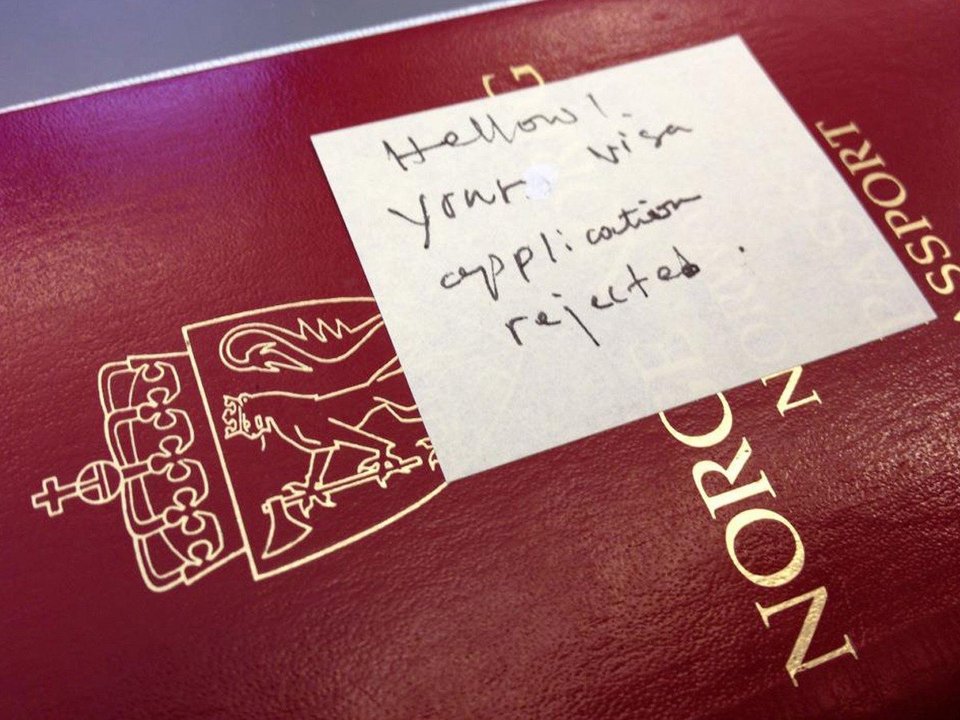 Hellow!
your visa
application
rejected.
NORG
ASSPORT